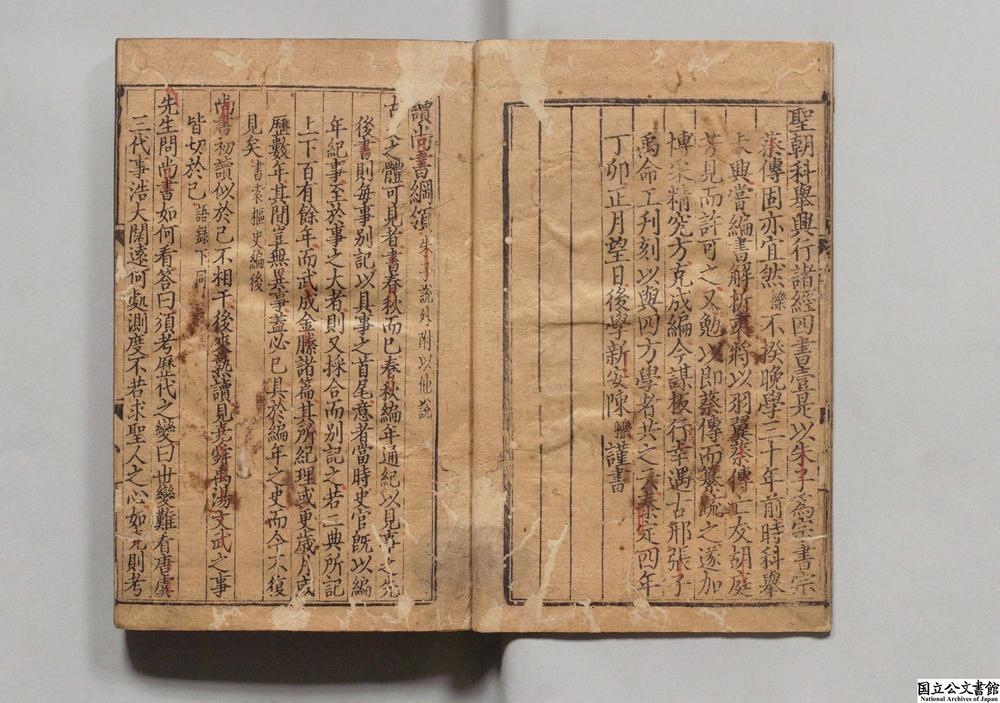 聖朝科舉興行諸經四書壹是以朱子爲宗書宗
蔡傳固亦宜然櫟不揆晚學三十年前時科舉
未興嘗編書解折衷將以羽翼蔡傳亡友胡庭
芳見而許可之又勉以即蔡傳而纂疏之遂加
博采精究方克成編今謀板行幸遇古邢張子
禹命工刋刻以與四方學者共之云泰定四年
丁卯正月望日後學新安陳櫟謹書
讀尚書綱領朱子說外附以他說
古之史體可見者書春秋而已春秋編年通紀以見事之先
後書則每事別記以具事之首尾意者當時史官旣以編
年紀事至於事之大者則又採合而別記之若二典所記
上下百有餘年而武成金縢諸篇其所紀理或更歲月或
歷數年其間豈無異事盖必已具於編年之史而今不復
見矣書表樞史編後
尚書初讀似於己不相干後來熟讀見堯舜禹湯文武之事
皆切於己語錄下同
先生問尚書如何看答曰須考歷代之變曰世變難看唐虞
三代事浩大闊遠何處測度不若求聖人之心如堯則考
国立公文書館
National Archives of Japan